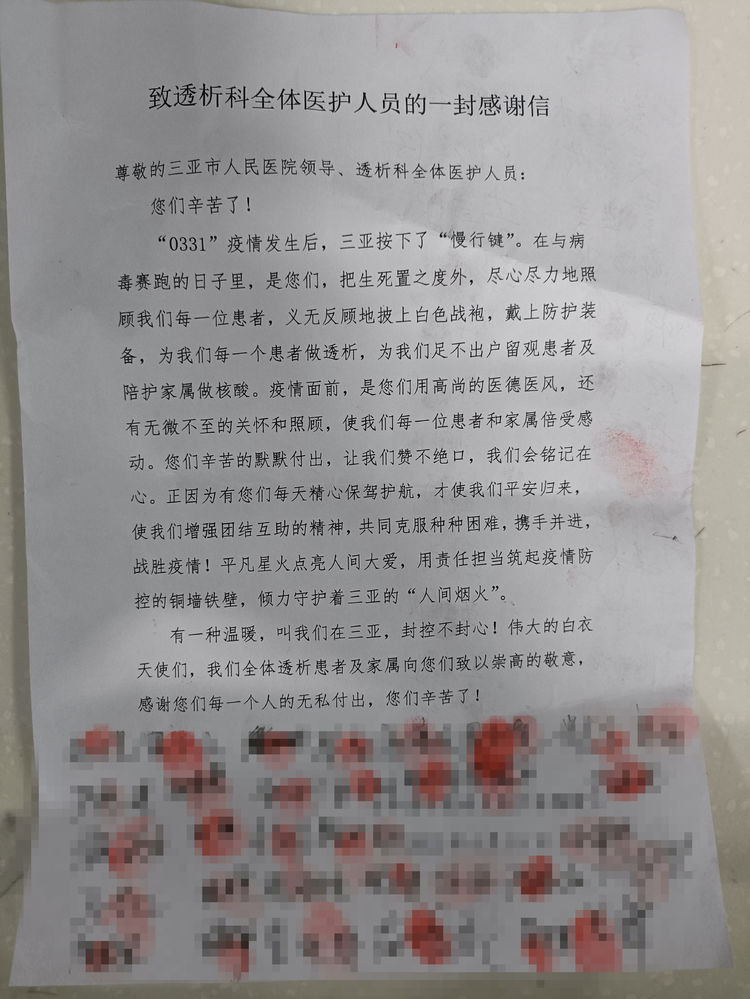 致透析科全体医护人员的一封感谢信
尊敬的三亚市人民医院领导、透析科全体医护人员：
您们辛苦了！
“0331”疫情发生后，三亚按下了“慢行键”。在与病
毒赛跑的日子里，是您们，把生死置之度外，尽心尽力地照
顾我们每一位患者，义无反顾地披上白色战袍，戴上防护装
备，为我们每一个患者做透析，为我们足不出户留观患者及
陪护家属做核酸。疫情面前，是您们用高尚的医德医风，还
有无微不至的关怀和照顾，使我们每一位患者和家属倍受感
动。您们辛苦的默默付出，让我们赞不绝口，我们会铭记在
心。正因为有您们每天精心保驾护航，才使我们平安归来，
使我们增强团结互助的精神，共同克服种种困难，携手并进，
战胜疫情！平凡星火点亮人间大爱，用责任担当筑起疫情防
控的铜墙铁壁，倾力守护着三亚的“人间烟火”。
有一种温暖，叫我们在三亚，封控不封心！伟大的白衣
天使们，我们全体透析患者及家属向您们致以崇高的敬意，
感谢您们每一个人的无私付出，您们辛苦了！